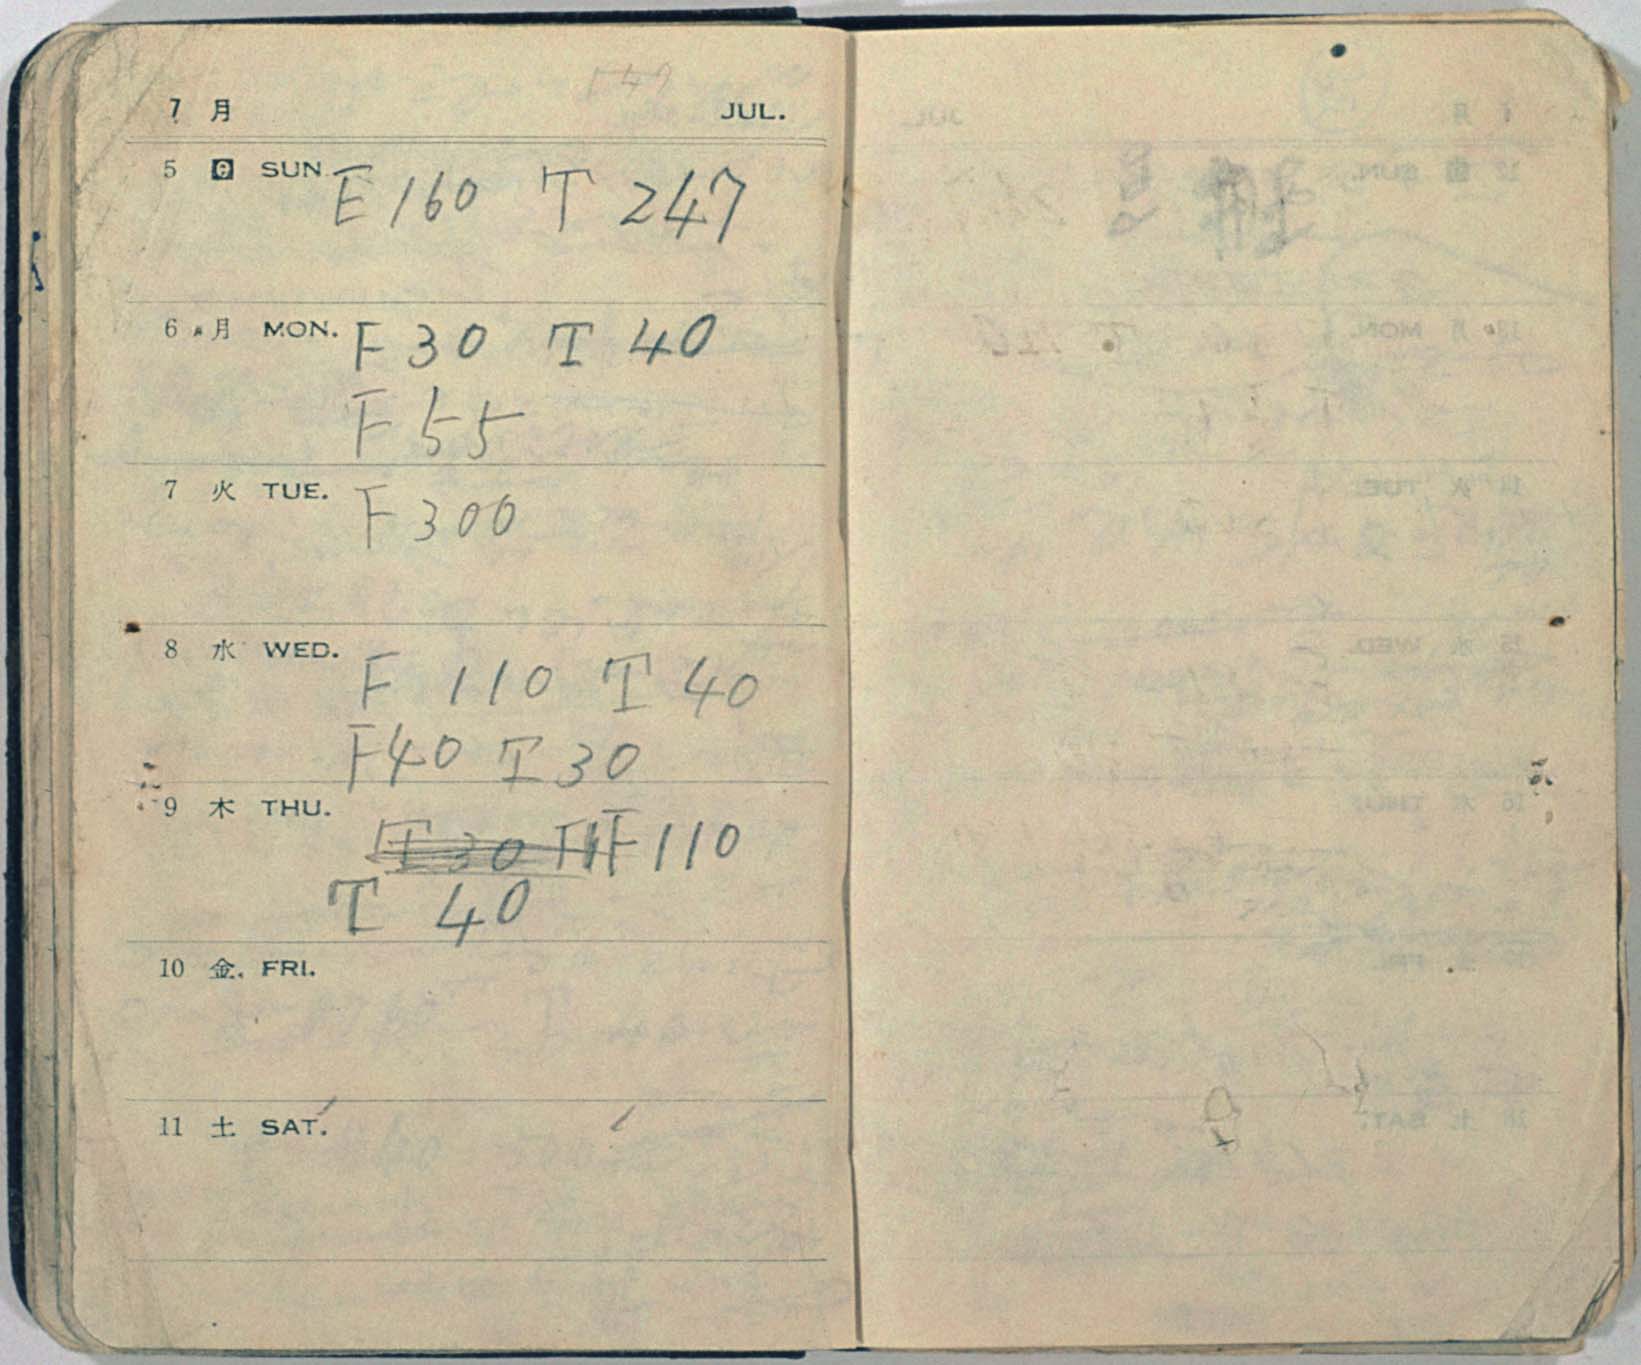 7 月 JUL.
5 日 SUN. E 160 T 247
6 月 MON. F 30 T 40
F 55
7 火 TUE. F 300
8 水 WED. F 110 T 40
F 40 T 30
9 木 THU.
T 30 F 110
T 40
10 金 FRI.
11 土 SAT.